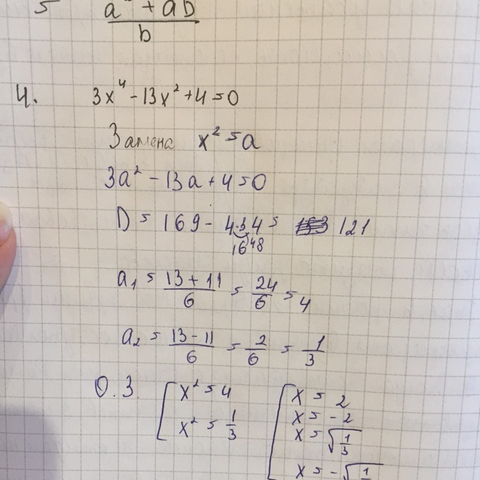 = (a² + ab)/b
4. 3x⁴ - 13x² + 4 = 0
Замена x² = a
3a² - 13a + 4 = 0
D = 169 - 4·3·4 = 121
16 48
a₁ = (13 + 11)/6 = 24/6 = 4
a₂ = (13 - 11)/6 = 2/6 = 1/3
О.З. [ x² = 4 [ x = 2
x = -2
x² = 1/3 x = √(1/3)
x = -√(1/